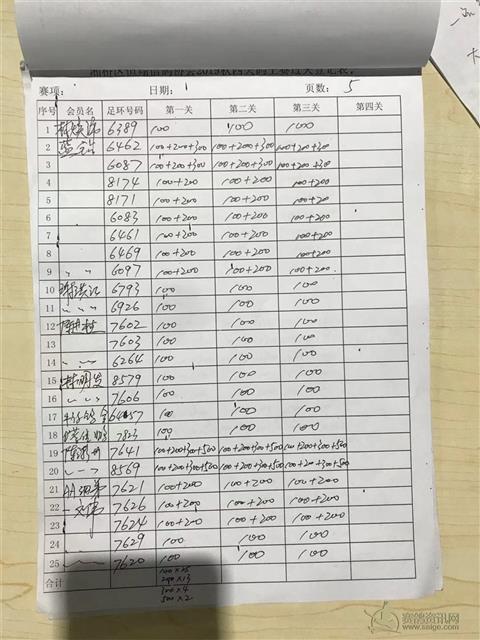 赛项： 日期： 页数：5
序号 会员名 足环号码 第一关 第二关 第三关 第四关
1 6389 100 100 100
2 6462 100+200+300 100+200+300 100+200+300
3 6087 100+200+300 100+200+300 100+200+300
4 8174 100+200 100+200 100+200
5 8171 100+200 100+200 100+200
6 6083 100+200 100+200 100+200
7 6461 100+200 100+200 100+200
8 6469 100+200 100+200 100+200
9 〃 〃 6097 100+200 300+200 100+200
10 6793 100 100 100
11 〃 〃 6926 100 100 100
12 7602 100 100 100
13 7603 100 100 100
14 6264 100 100 100
15 8579 100 100 100
16 〃 〃 7606 100 100 100
17 100 100 100
18 7823 100 100 100
19 7641 100+200+300+500 100+200+300+500 100+200+300+500
20 8569 100+200+300+500 100+200+300+500 100+200+300+500
21 7621 100+200 100+200 100+200
22 7626 100+200 100+200 100+200
23 7624 100+200 100+200 100+200
24 7629 100 100 100
25 7620 100 100 100
合计 100×25
200×13
300×4
500×2
赛鸽资讯网
www.saige.com